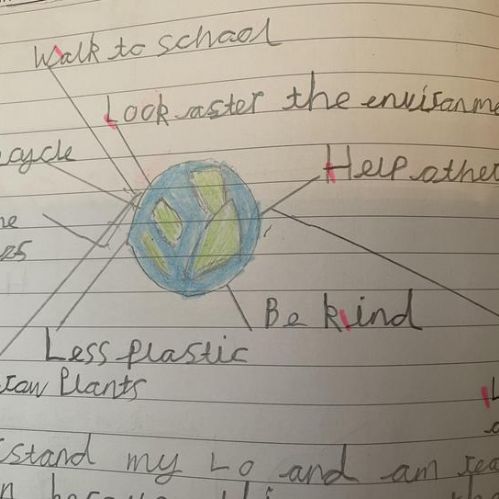 Walk to school
Look aster the environme
ecycle
Help other
Be kind
Less plastic
Plants
stand my LO and am rea